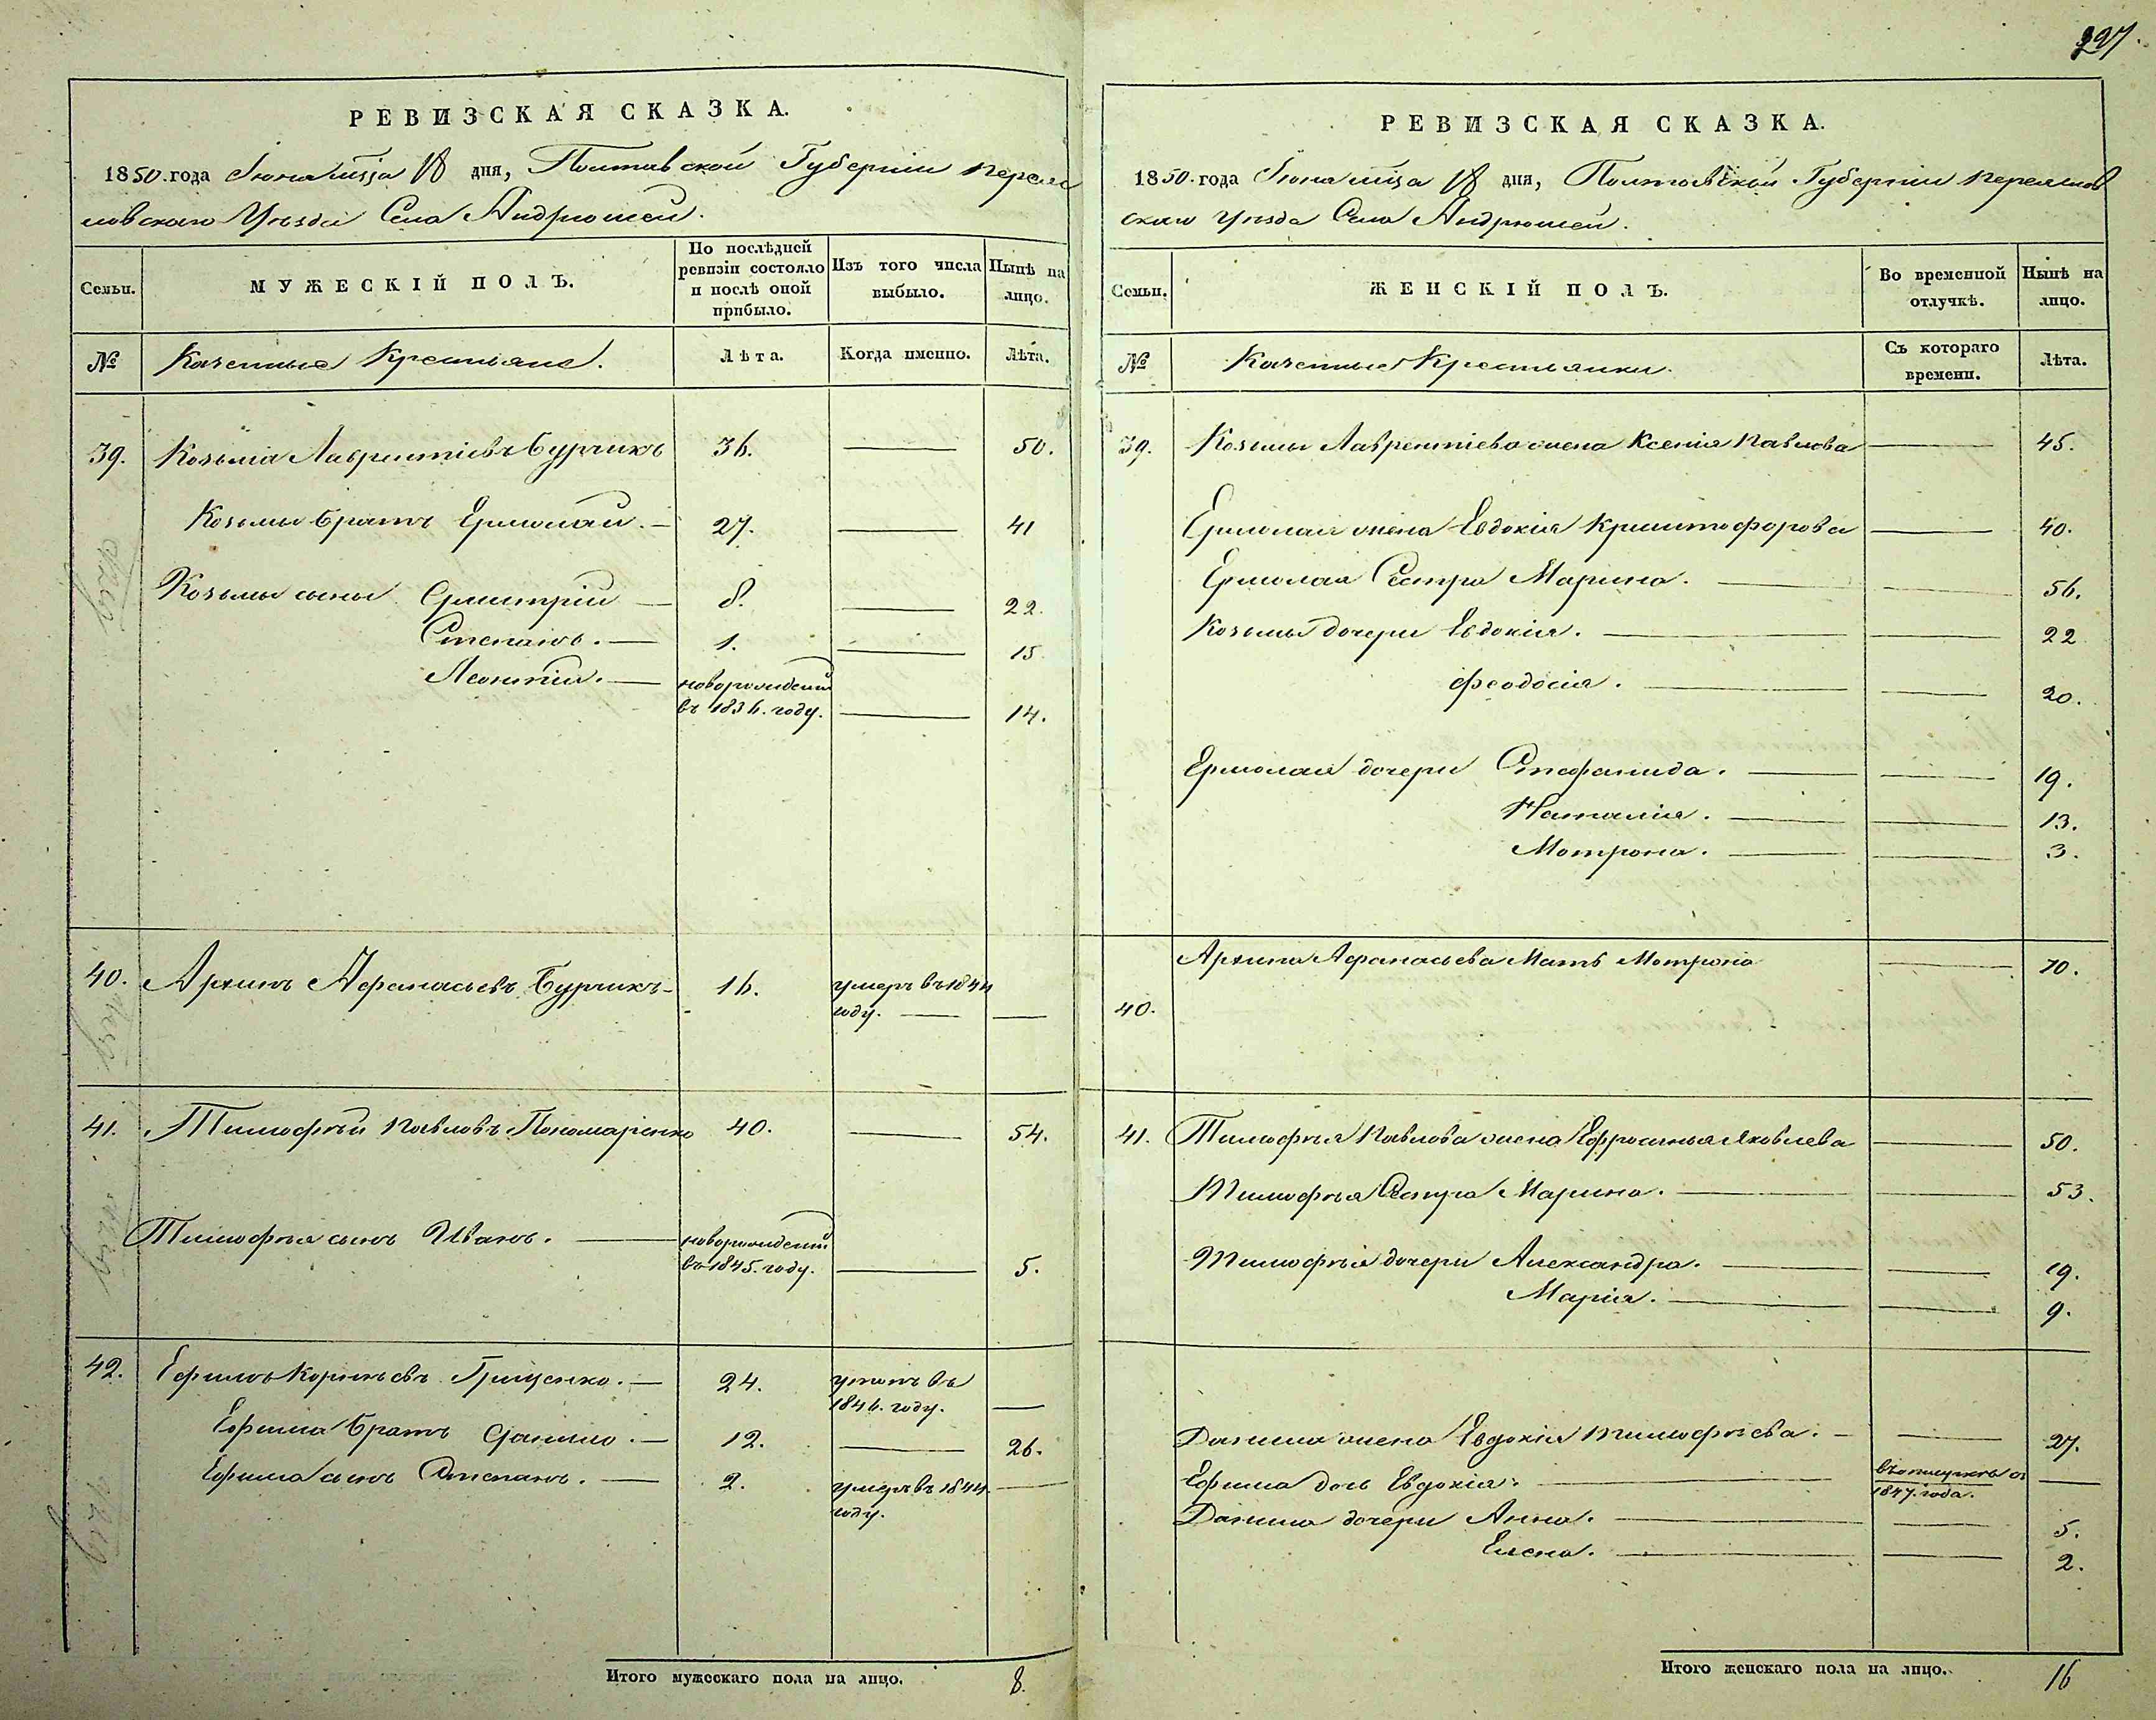 297.
РЕВИЗСКАЯ СКАЗКА.
1850 года Іюня мѣсяца 18 дня, Полтавской Губерніи Переяс
ловскаго Уѣзда Села Андрюшей.
Семьи.
МУЖЕСКІЙ ПОЛЪ.
По послѣдней
ревизіи состояло
и послѣ оной
прибыло.
Изъ того числа
выбыло.
Нынѣ на
лицо.
№
Казенные Крестьяне.
Лѣта.
Когда именно.
Лѣта.
39. Козьма Лаврентіевъ Бурчикъ 36. 50.
Козьмы братъ Ермолай. 27. 41
Козьмы сыны Дмитрій 8. 22.
Степанъ. 1. 15
Леонтій. новорожденный
въ 1836. году. 14.
40. Архипъ Афанасьевъ Бурчикъ 16. умеръ въ 1844
году.
41. Тимофѣй Павловъ Пономаренко 40. 54.
Тимофѣя сынъ Иванъ. новорожденный
въ 1845. году. 5.
42. Ефимъ Корнѣевъ Грищенко. 24. утопъ въ
1846. году.
Ефима братъ Данило. 12. 26.
Ефима сынъ Степанъ. 2. умеръ въ 1844.
году.
Итого мужескаго пола на лицо. 8.
РЕВИЗСКАЯ СКАЗКА.
1850. года Іюня мѣсяца 18 дня, Полтавской Губерніи Переяслов
скаго Уѣзда Села Андрюшей.
Семьи.
ЖЕНСКІЙ ПОЛЪ.
Во временной
отлучкѣ.
Нынѣ на
лицо.
№
Казенные Крестьянки.
Съ котораго
времени.
Лѣта.
39. Козьмы Лаврентіева жена Ксенія Павлова 45.
Ермолая жена Евдокія Криштофорова 40.
Ермолая Сестра Марина. 56.
Козьмы дочери Евдокія. 22
Феодосія. 20.
Ермолая дочери Стефанида. 19.
Наталія. 13.
Мотрона. 3.
Архипа Афанасьева Мать Мотрона 70.
40.
41. Тимофѣя Павлова жена Ефросинья Яковлева 50.
Тимофѣя Сестра Марина. 53.
Тимофѣя дочери Александра. 19.
Марія. 9.
Данила жена Евдокія Тимофѣева. 27.
Ефима дочь Евдокія. въ отлучкѣ съ
1847. года.
Данила дочери Анна. 5.
Елена. 2.
Итого женскаго пола на лицо. 16